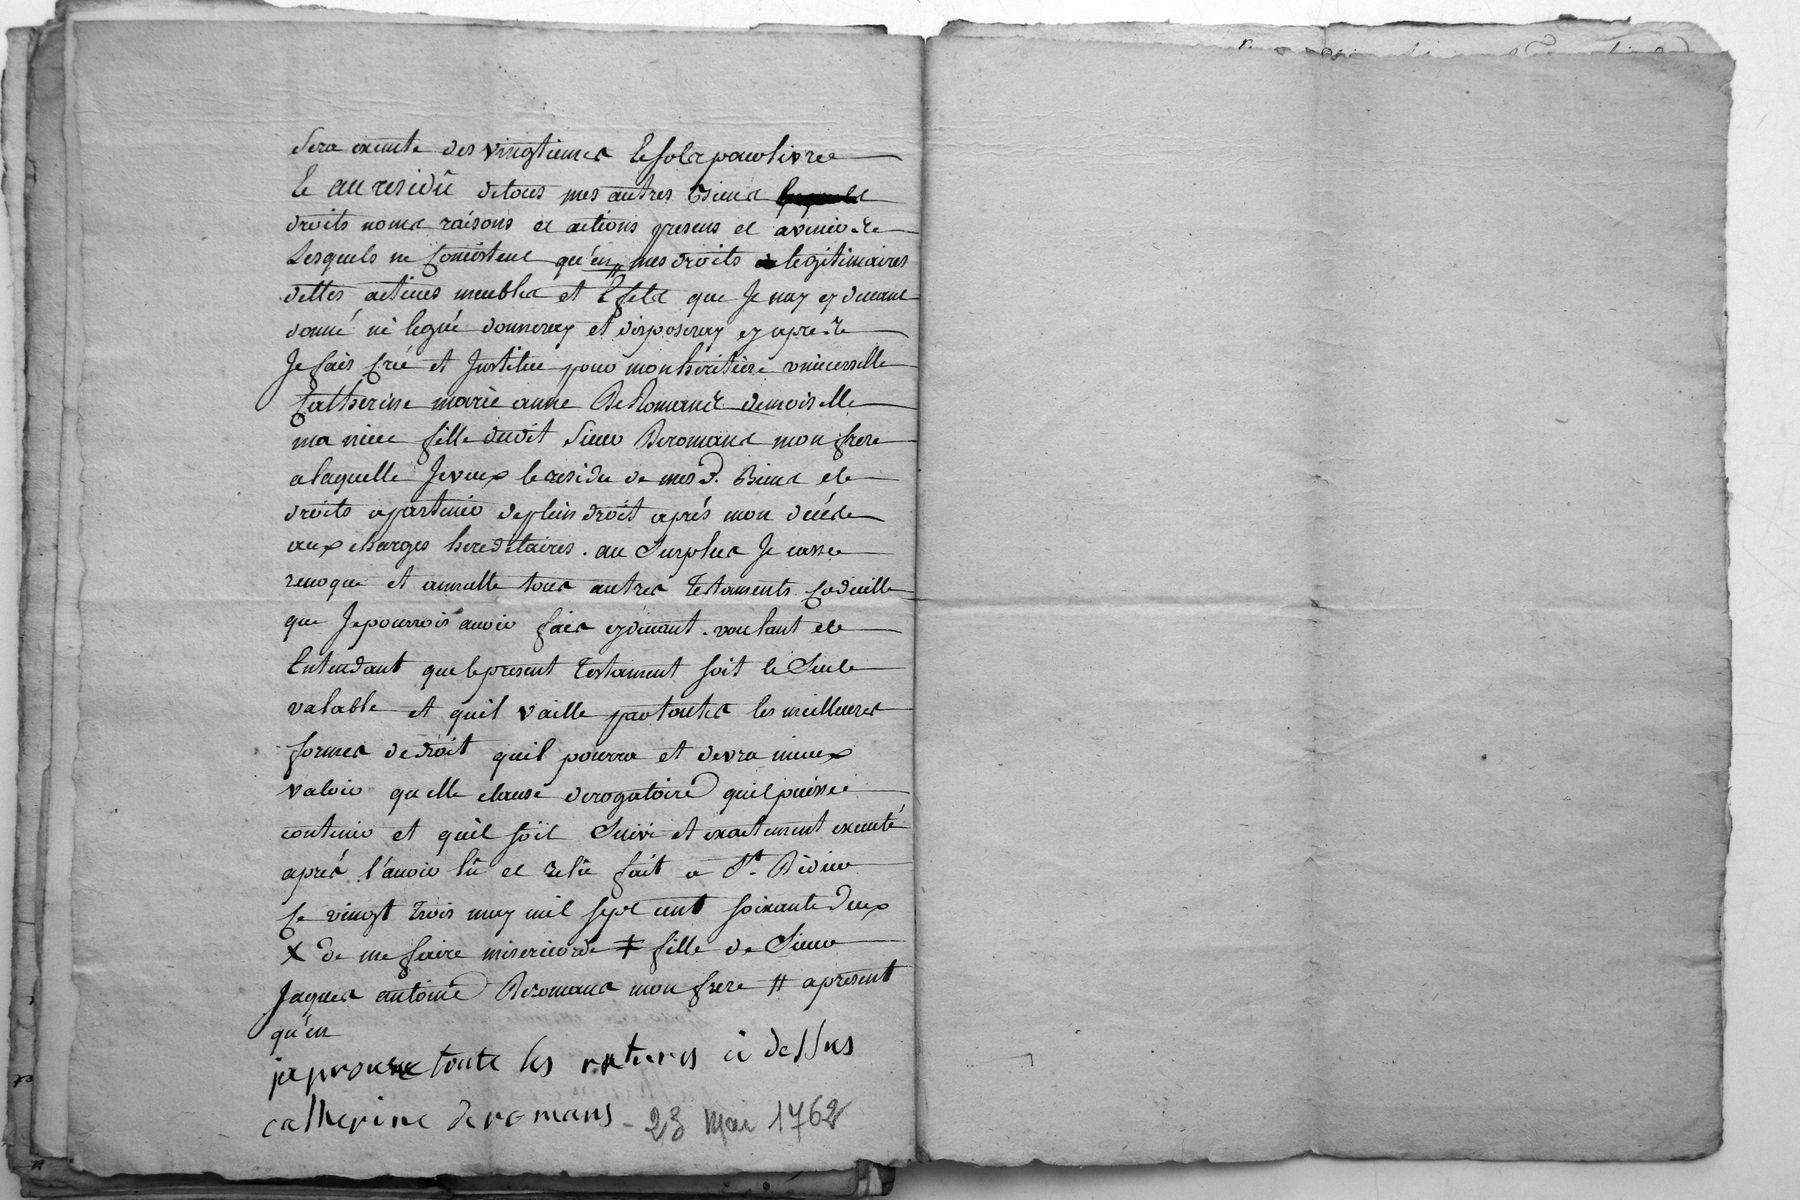 sera exempte des vingtiemes & sols pour livres
& au residû de tous mes autres Biens
droits noms raisons et actions presens et avenirs
Lesquels ne Consistent qu'en mes droits legitimaires
dettes actives meubles et Effets que Je nay cy devant
donné ni legué donneray et disposeray cy apres
Je fais Créé et Institue pour mon heritiere universelle
Catherine marie anne De Romans demoiselle
ma niece fille dudit Sieur Deromans mon frere
a laquelle Je veux le residu de mes d. Biens et
droits apartenir de plein droit aprés mon décés
aux charges hereditaires. au Surplus Je casse
revoque et annulle tous autres Testaments Codicille
que Je pourrois avoir fait cy devant. voulant et
Entendant que le present Testament soit le Seul
valable et quil vaille par toutes les meilleures
formes de droit quil pourra et devra mieux
valoir quelle clause derogatoire quil puisse
contenir et quil soit Suivi et exactement executé
aprés l'avoir lû et relû fait a St. Didier
Ce vingt Trois may mil sept cent soixante deux
X de me faire misericorde ‡ fille de Sieur
Jaques antoine Deromans mon frere # apresent
qu'en
japrouve toute les ratures ci dessus
catherine de romans - 23 Mai 1762